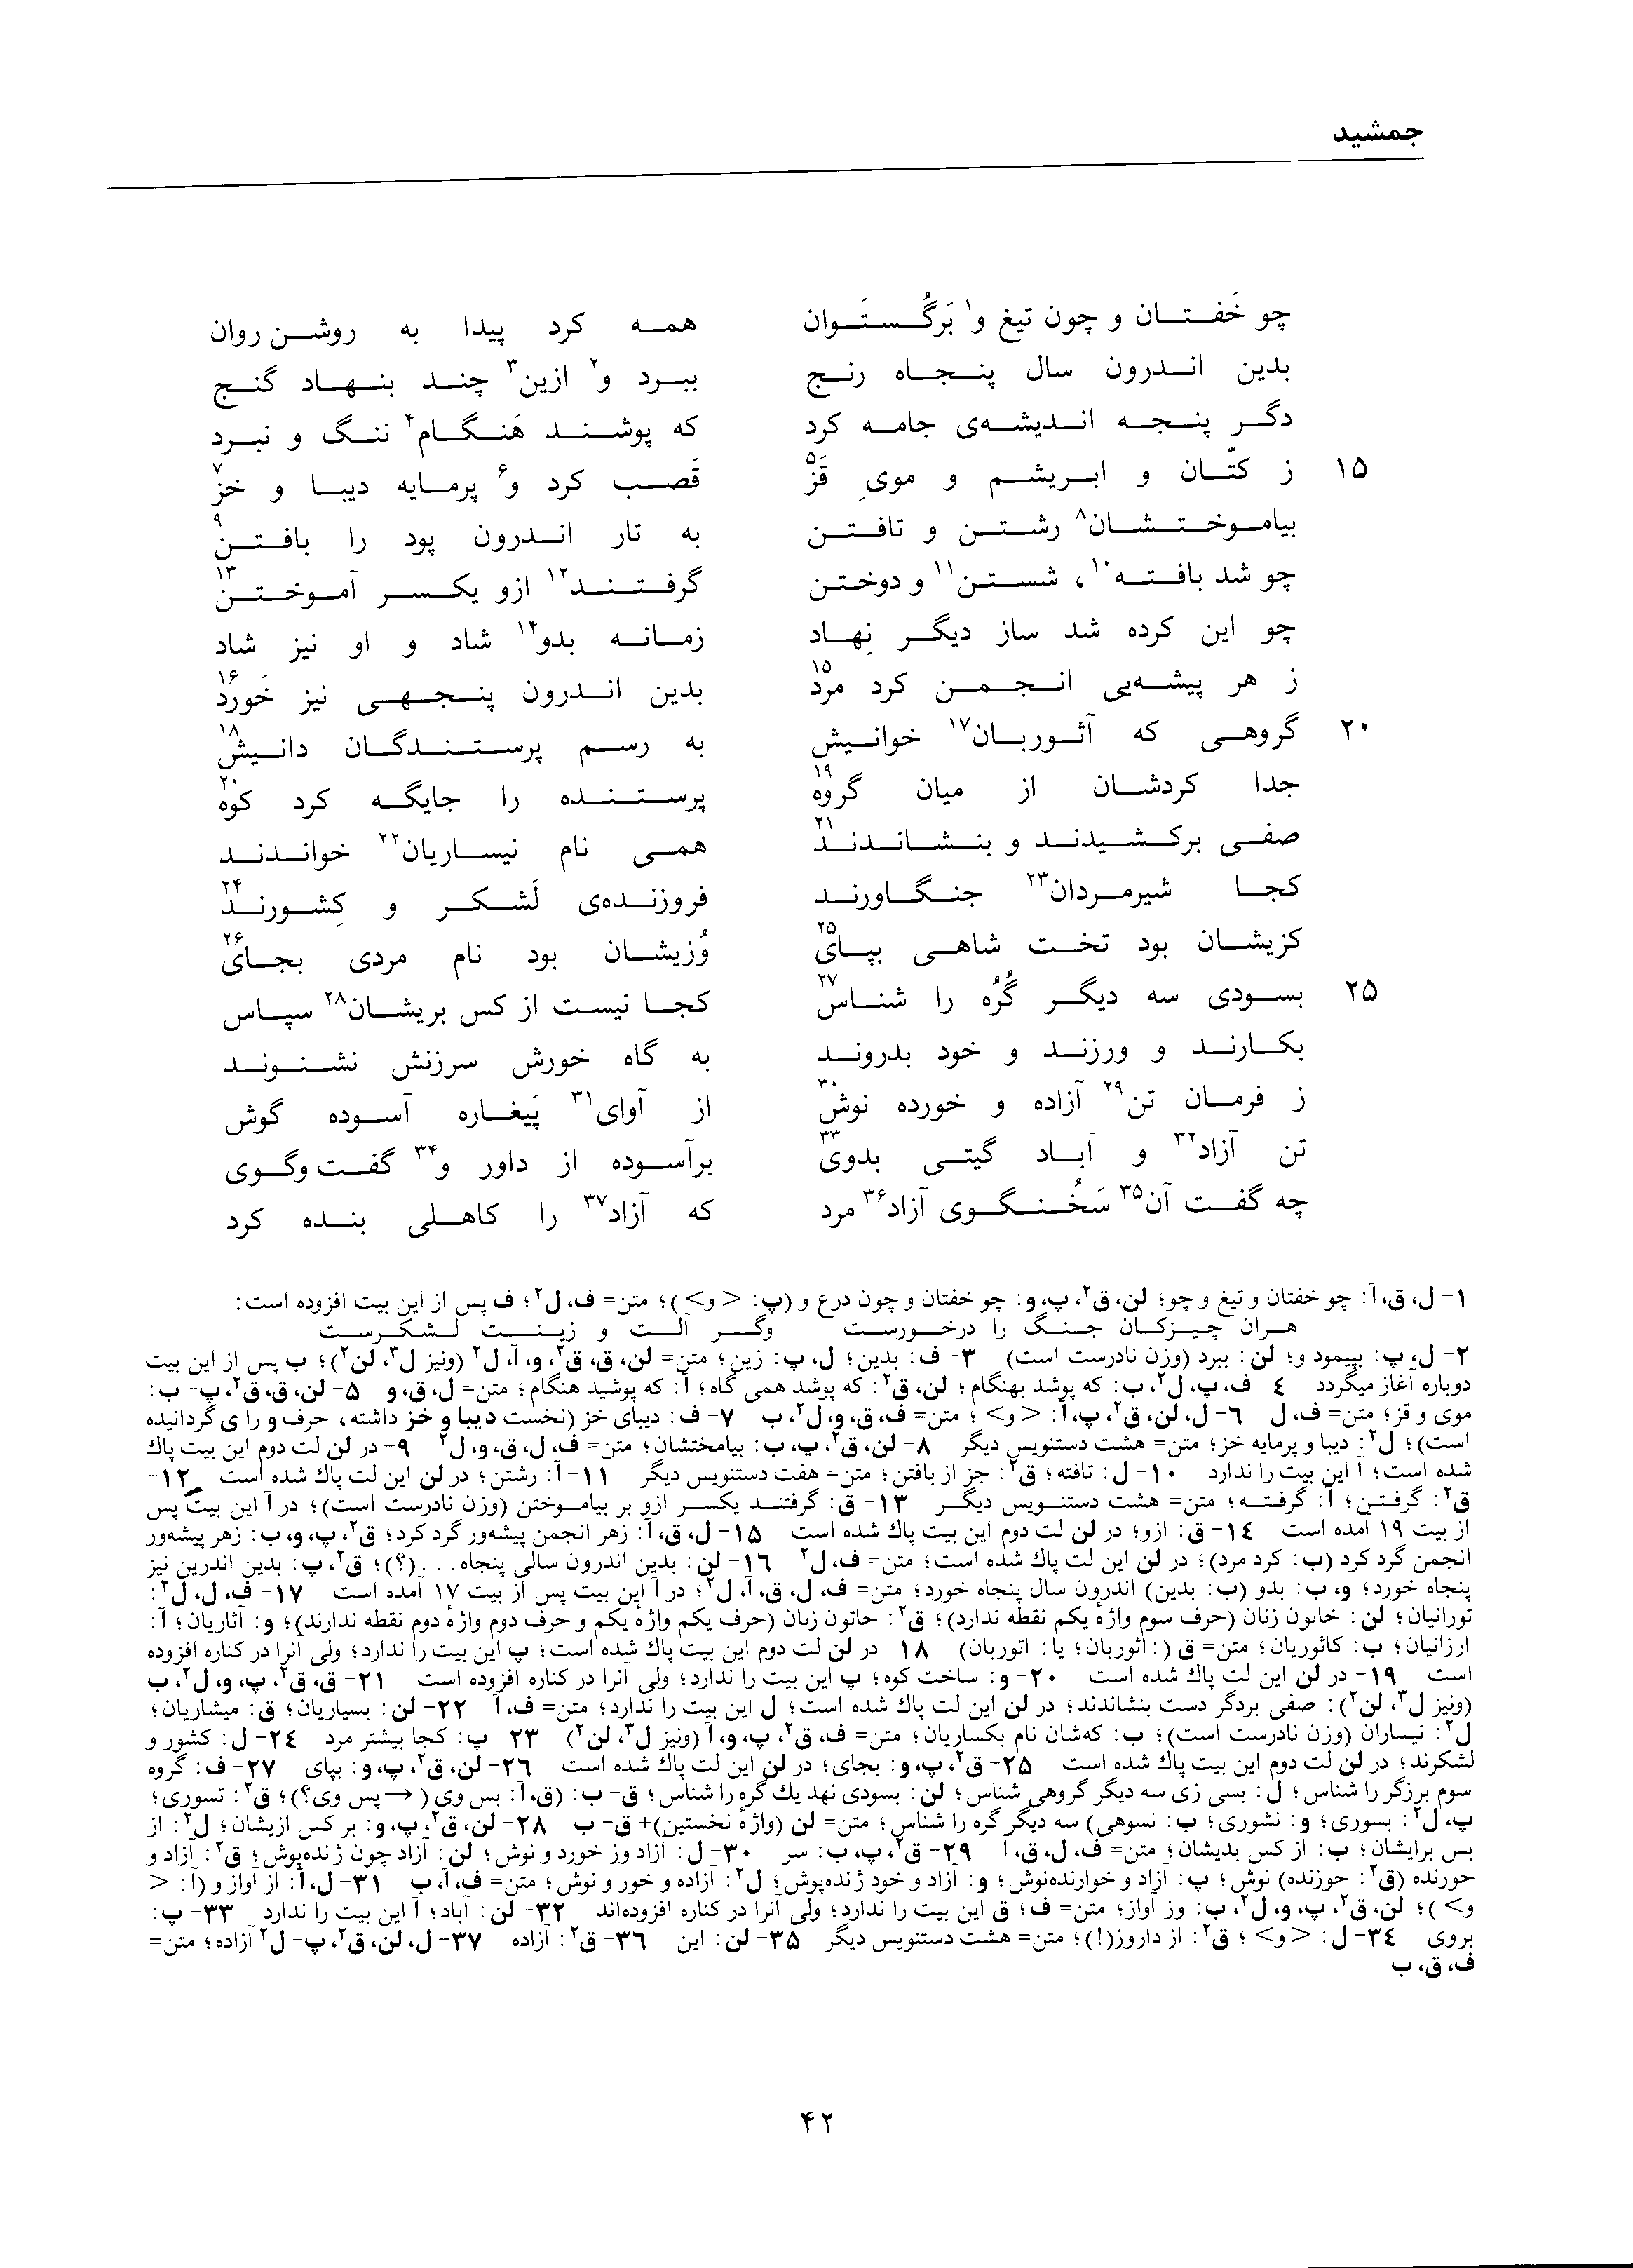 جمشید
چو خَفتان و چون تیغ و۱ بَرگُستَوان همه کرد پیدا به روشن روان
بدین اندرون سال پنجاه رنج ببرد و۲ ازین۳ چند بنهاد گنج
دگر پنجه اندیشه‌ی جامه کرد که پوشند هَنگام۴ ننگ و نبرد
۱۵ ز کتّان و ابریشم و موی قَزّ۵ قَصب کرد و۶ پرمایه دیبا و خزّ۷
بیاموختشان۸ رشتن و تافتن به تار اندرون پود را بافتن۹
چو شد بافته۱۰، شستن۱۱ و دوختن گرفتند۱۲ ازو یکسر آموختن۱۳
چو این کرده شد ساز دیگر نِهاد زمانه بدو۱۴ شاد و او نیز شاد
ز هر پیشه‌یی انجمن کرد مرد۱۵ بدین اندرون پنجهی نیز خَورد۱۶
۲۰ گروهی که آثوربان۱۷ خوانیش به رسم پرستندگان دانیش۱۸
جدا کردشان از میان گروه۱۹ پرستنده را جایگه کرد کوه۲۰
صفی برکشیدند و بنشاندند۲۱ همی نام نیساریان۲۲ خواندند
کجا شیرمردان۲۳ جنگاورند فروزنده‌ی لَشکر و کِشورند۲۴
کزیشان بود تخت شاهی بپای۲۵ وُزیشان بود نام مردی بجای۲۶
۲۵ بسودی سه دیگر گُرُه را شناس۲۷ کجا نیست از کس بریشان۲۸ سپاس
بکارند و ورزند و خود بدروند به گاه خورش سرزنش نشنوند
ز فرمان تن۲۹ آزاده و خورده نوش۳۰ از آوای۳۱ پَیغاره آسوده گوش
تن آزاد۳۲ و آباد گیتی بدوی۳۳ برآسوده از داور و۳۴ گفت وگوی
چه گفت آن۳۵ سَخُنگوی آزاد۳۶ مرد که آزاد۳۷ را کاهلی بنده کرد
۱- ل، ق، آ: چو خفتان و تیغ و چو؛ لن، ق۲، پ، و: چو خفتان و چون درع و (پ: < و>)؛ متن= ف، ل۲؛ ف پس از این بیت افزوده است:
هران چیزکان جنگ را درخورست وگر آلت و زینت لشکرست
۲- ل، پ: بپیمود و؛ لن: ببرد (وزن نادرست است) ۳- ف: بدین؛ ل، پ: زین؛ متن= لن، ق، ق۲، و، آ، ل۲ (ونیز ل۳، لن۲)؛ ب پس از این بیت
دوباره آغاز میگردد ٤- ف، پ، ل۲، ب: که پوشد بهنگام؛ لن، ق۲: که پوشد همی گاه؛ آ: که پوشید هنگام؛ متن= ل، ق، و ۵- لن، ق، ق۲، پ- ب:
موی و قز؛ متن= ف، ل ٦- ل، لن، ق۲، پ، آ: < و> ؛ متن= ف، ق، و، ل۲، ب ۷- ف: دیبای خز (نخست دیبا و خز داشته، حرف و را ی گردانیده
است)؛ ل۲: دیبا و پرمایه خز؛ متن= هشت دستنویس دیگر ۸- لن، ق۲، پ، ب: بیامختشان؛ متن= ف، ل، ق، و، ل۲ ۹- در لن لت دوم این بیت پاك
شده است؛ آ این بیت را ندارد ۱۰- ل: تافته؛ ق۲: جز از بافتن؛ متن= هفت دستنویس دیگر ۱۱- آ: رشتن؛ در لن این لت پاك شده است ۱۲-
ق۲: گرفتن؛ آ: گرفته؛ متن= هشت دستنویس دیگر ۱۳- ق: گرفتند یکسر ازو بر بیاموختن (وزن نادرست است)؛ در آ این بیت پس
از بیت ۱۹ آمده است ۱٤- ق: ازو؛ در لن لت دوم این بیت پاك شده است ۱۵- ل، ق، آ: زهر انجمن پیشه‌ور گرد کرد؛ ق۲، پ، و، ب: زهر پیشه‌ور
انجمن گرد کرد (ب: کرد مرد)؛ در لن این لت پاك شده است؛ متن= ف، ل۲ ۱٦- لن: بدین اندرون سالی پنجاه...(؟)؛ ق۲، پ: بدین اندرین نیز
پنجاه خورد؛ و، ب: بدو (ب: بدین) اندرون سال پنجاه خورد؛ متن= ف، ل، ق، آ، ل۲؛ در آ این بیت پس از بیت ۱۷ آمده است ۱۷- ف، ل، ل۲:
تورانیان؛ لن: خابون زنان (حرف سوم واژهٔ یکم نقطه ندارد)؛ ق۲: حاتون زبان (حرف یکم واژهٔ یکم و حرف دوم واژهٔ دوم نقطه ندارند)؛ و: آثاریان؛ آ:
ارزانیان؛ ب: کاثوریان؛ متن= ق (: اثوربان؛ یا: اتوربان) ۱۸- در لن لت دوم این بیت پاك شده است؛ پ این بیت را ندارد؛ ولی آنرا در کناره افزوده
است ۱۹- در لن این لت پاك شده است ۲۰- و: ساخت کوه؛ پ این بیت را ندارد؛ ولی آنرا در کناره افزوده است ۲۱- ق، ق۲، پ، و، ل۲، ب
(ونیز ل۳، لن۲): صفی بردگر دست بنشاندند؛ در لن این لت پاك شده است؛ ل این بیت را ندارد؛ متن= ف، آ ۲۲- لن: بسیاریان؛ ق: میشاریان؛
ل۲: نیساران (وزن نادرست است)؛ ب: که‌شان نام بکساریان؛ متن= ف، ق۲، پ، و، آ (ونیز ل۳، لن۲) ۲۳- پ: کجا بیشتر مرد ۲٤- ل: کشور و
لشکرند؛ در لن لت دوم این بیت پاك شده است ۲۵- ق۲، پ، و: بجای؛ در لن این لت پاك شده است ۲٦- لن، ق۲، پ، و: بپای ۲۷- ف: گروه
سوم برزگر را شناس؛ ل: بسی زی سه دیگر گروهی شناس؛ لن: بسودی نهد یك گره را شناس؛ ق- ب: (ق، آ: بس وی (→پس وی؟)؛ ق۲: تسوری؛
پ، ل۲: بسوری؛ و: نشوری؛ ب: نسوهی) سه دیگر گره را شناس؛ متن= لن (واژهٔ نخستین)+ ق- ب ۲۸- لن، ق۲، پ، و: بر کس ازیشان؛ ل۲: از
بس برایشان؛ ب: از کس بدیشان؛ متن= ف، ل، ق، آ ۲۹- ق۲، پ، ب: سر ۳۰- ل: آزاد وز خورد و نوش؛ لن: آزاد چون ژنده‌پوش؛ ق۲: آزاد و
حورنده (ق۲: حوزنده) نوش؛ پ: آزاد و خوارنده‌نوش؛ و: آزاد و خود ژنده‌پوش؛ ل۲: آزاده و خور و نوش؛ متن= ف، آ، ب ۳۱- ل، آ: از آواز و (آ: <
و> )؛ لن، ق۲، پ، و، ل۲، ب: وز آواز؛ متن= ف؛ ق این بیت را ندارد؛ ولی آنرا در کناره افزوده‌اند ۳۲- لن: آباد؛ آ این بیت را ندارد ۳۳- پ:
بروی ۳٤- ل: < و> ؛ ق۲: از داروز(!)؛ متن= هشت دستنویس دیگر ۳۵- لن: این ۳٦- ق۲: آزاده ۳۷- ل، لن، ق۲، پ- ل۲ آزاده؛ متن=
ف، ق، ب
۴۲